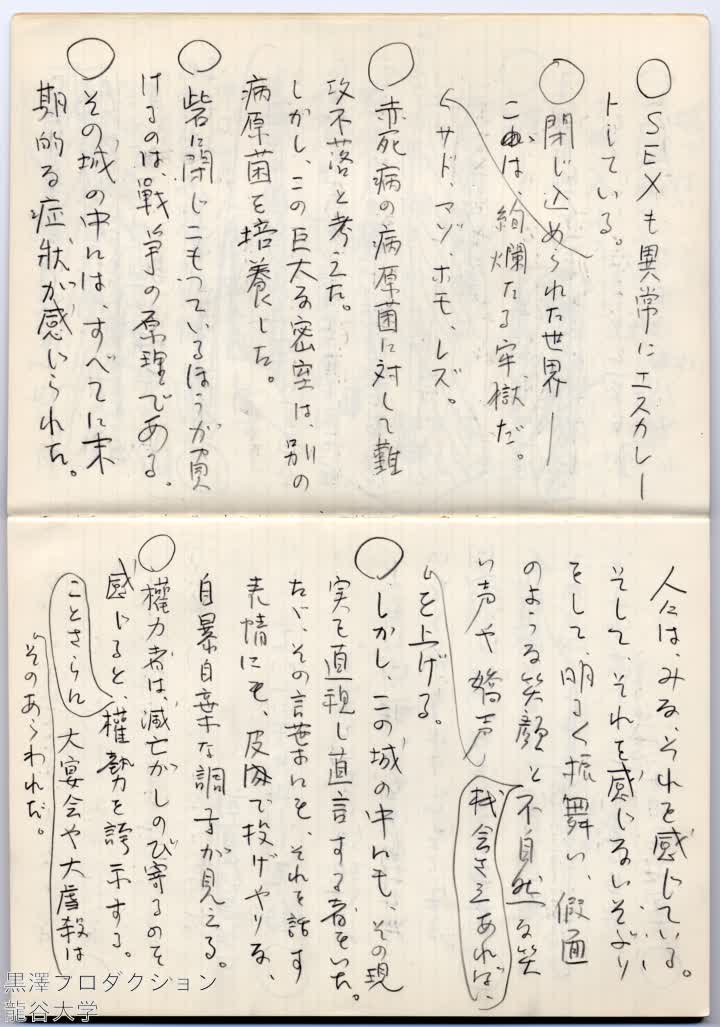 ○SEXも異常にエスカレー
トしている。
○閉じ込められた世界―
これは、絢爛たる牢獄だ。
サド、マゾ、ホモ、レズ。
○赤死病の病原菌に対して難
攻不落と考えた。
しかし、この巨大な密室は、別の
病原菌を培養した。
○砦に閉じこもつているほうが負
けるのは、戰争の原理である。
○その城の中には、すべてに末
期的な症狀が感じられた。
人には、みな、それを感じている。
そして、それを感じないそぶり
をして、明るく振舞い、假面
のような笑顔と不自然な笑
い声や嬌声
機会さえあれば、
を上げる。
○しかし、この城の中にも、その現
実を直視し直言する者もいた。
たゞ、その言葉にも、それを話す
表情にも、皮肉で投げやりな、
自暴自棄な調子が見える。
○權力者は、滅亡がしのび寄るのを
感じると、權勢を誇示する。
ことさらに
大宴会や大虐殺は
そのあらわれだ。
黒澤プロダクション
龍谷大学